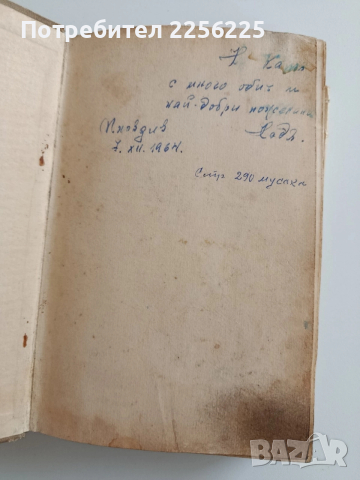 Потребител 22256258
с много обич и
най-добри пожелания
Пловдив Надя.
7. XII. 1964.
Стр 290 мусака
BAZAR